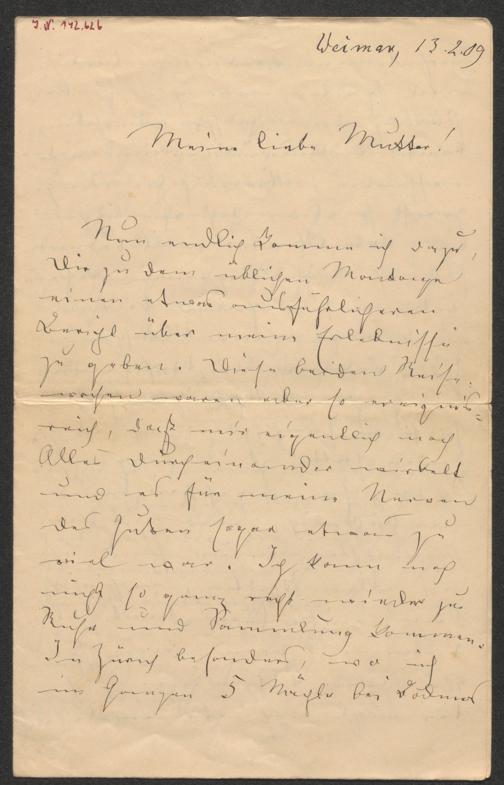 I.N. 142.626
Weimar, 13.2.09
Meine liebe Mutter!
Nun endlich komme ich dazu,
Dir zu dem üblichen
einen etwas ausführlicheren
Bericht über meine Erlebnisse
zu geben. Diese beiden Reise-
wochen waren aber so ereignis-
reich, daß mir eigentlich noch
Alles durcheinander wirbelt
und es für meine Nerven
des Guten sogar etwas zu
viel war. Ich kann noch
nicht so ganz recht wieder zu
Ruhe und Sammlung kommen.
In Zürich besonders, wo ich
im Ganzen 5 Nächte bei